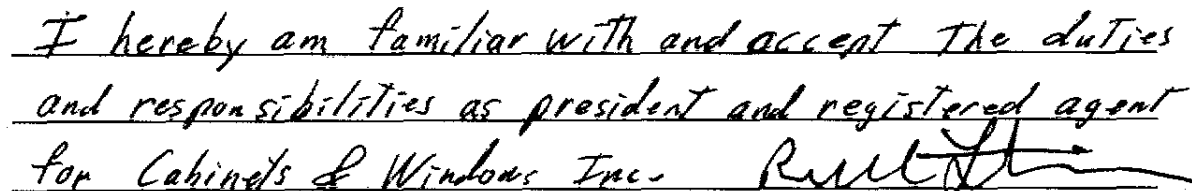 I hereby am familiar with and accept the duties
and responsibilities as president and registered agent
for Cabinets & Windows Inc.